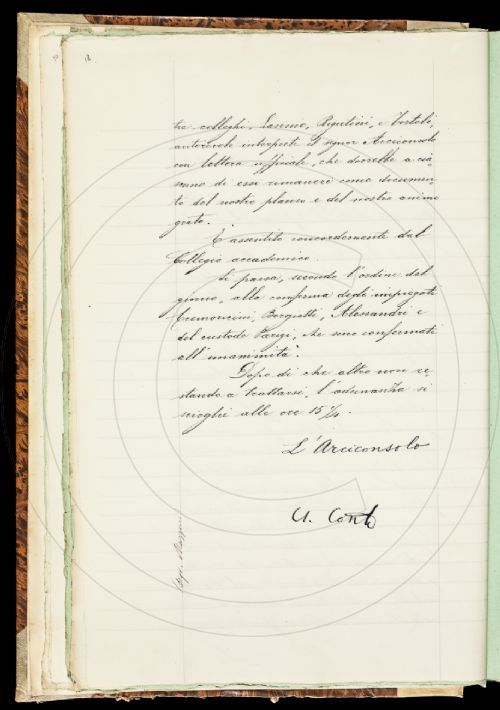 tre colleghi,
autorevole interprete il signor Arciconsolo
con lettera ufficiale, che dovrebbe a cia-
scuno di essi rimanere come documen-
to del nostro plauso e del nostro animo
grato.
È assentito concordemente dal
Collegio accademico.
Si passa, secondo l'ordine del
giorno, alla conferma degli impiegati
Cremoncini, Borgiotti, Alessandri e
del custode Parigi, che sono confermati
all'unanimità.
Dopo di che altro non re-
stando a trattarsi, l'adunanza si
scioglie alle ore 15
L'Arciconsolo
A. Conti